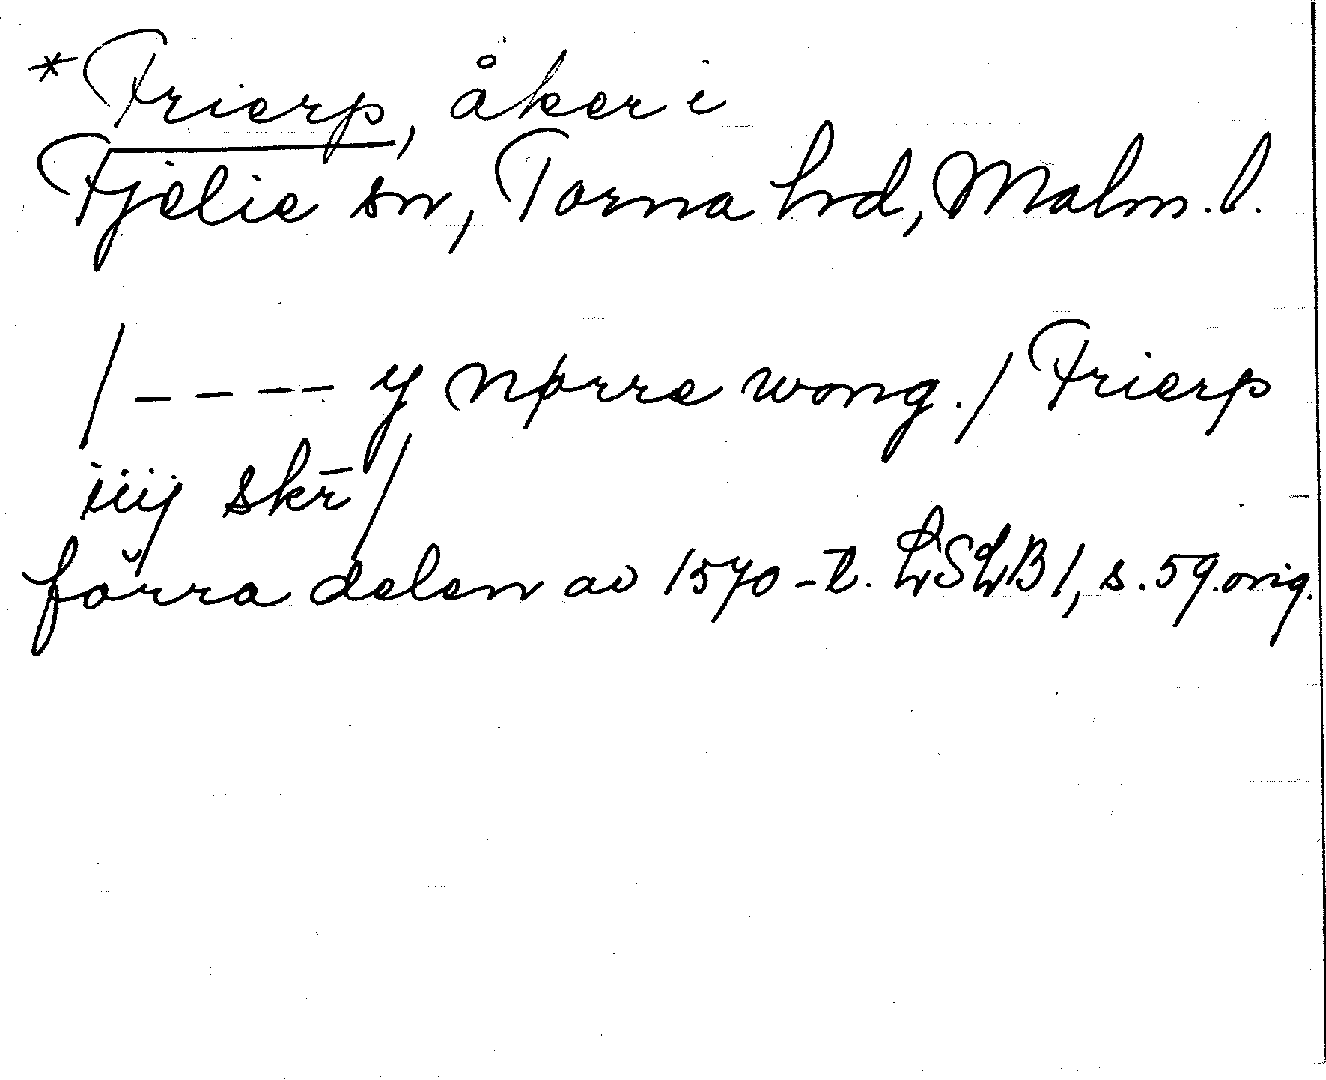 *Frierp, åker i
Fjelie sn, Torna hrd, Malm. l.
/ - - - - y nørre wong. / Frierp
iiij skr̄ /
förra delen av 1570-t. LSLB 1, s. 59. orig.